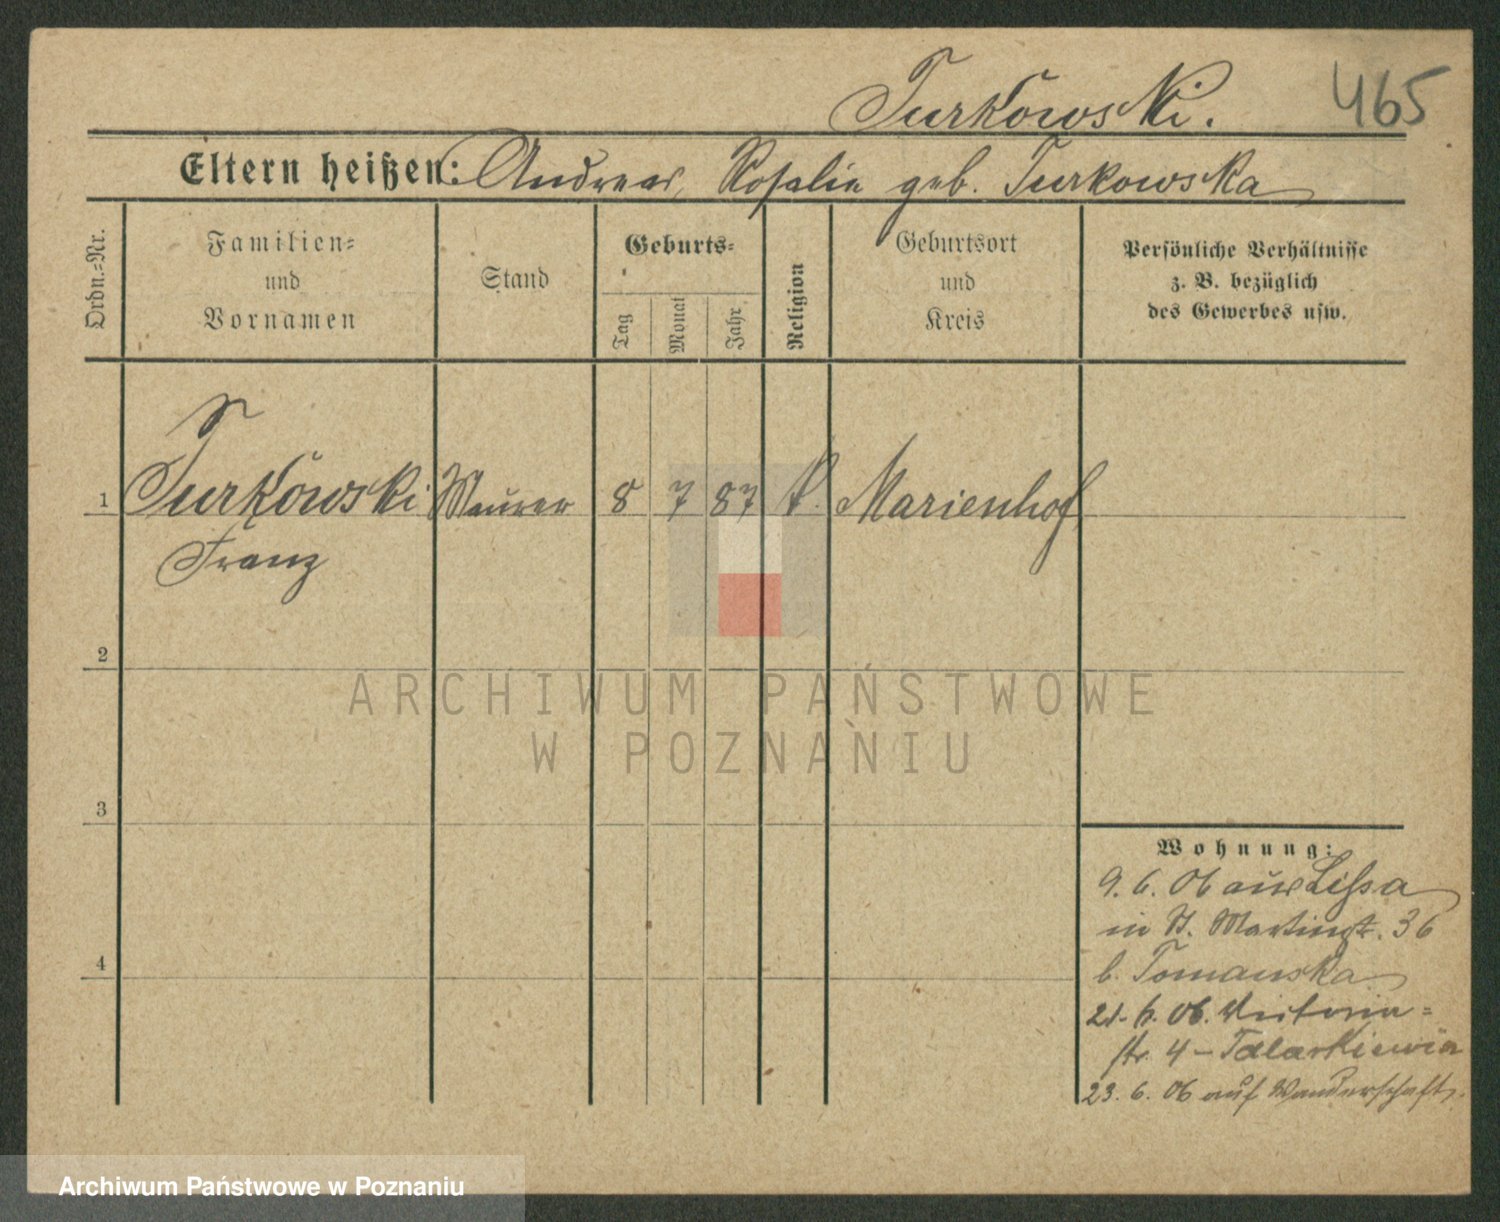 Turkowski.
465
Eltern heißen: Andreas, Rosalie geb. Turkowska
Ordn.=Nr.
Familien=
und
Vornamen
Stand
Geburts=
Tag
Monat
Jahr
Religion
Geburtsort
und
Kreis
Persönliche Verhältnisse
z. B. bezüglich
des Gewerbes usw.
1 Turkowski Maurer 8 7 87 k. Marienhof
Franz
2
ARCHIWUM PAŃSTWOWE
W POZNANIU
3
Wohnung:
9. 6. 06 aus Lissa
in St. Martinstr. 36
4
b. Tomanska
21. 6. 06. Victoria=
str. 4 –
23. 6. 06 auf Wanderschaft.
Archiwum Państwowe w Poznaniu